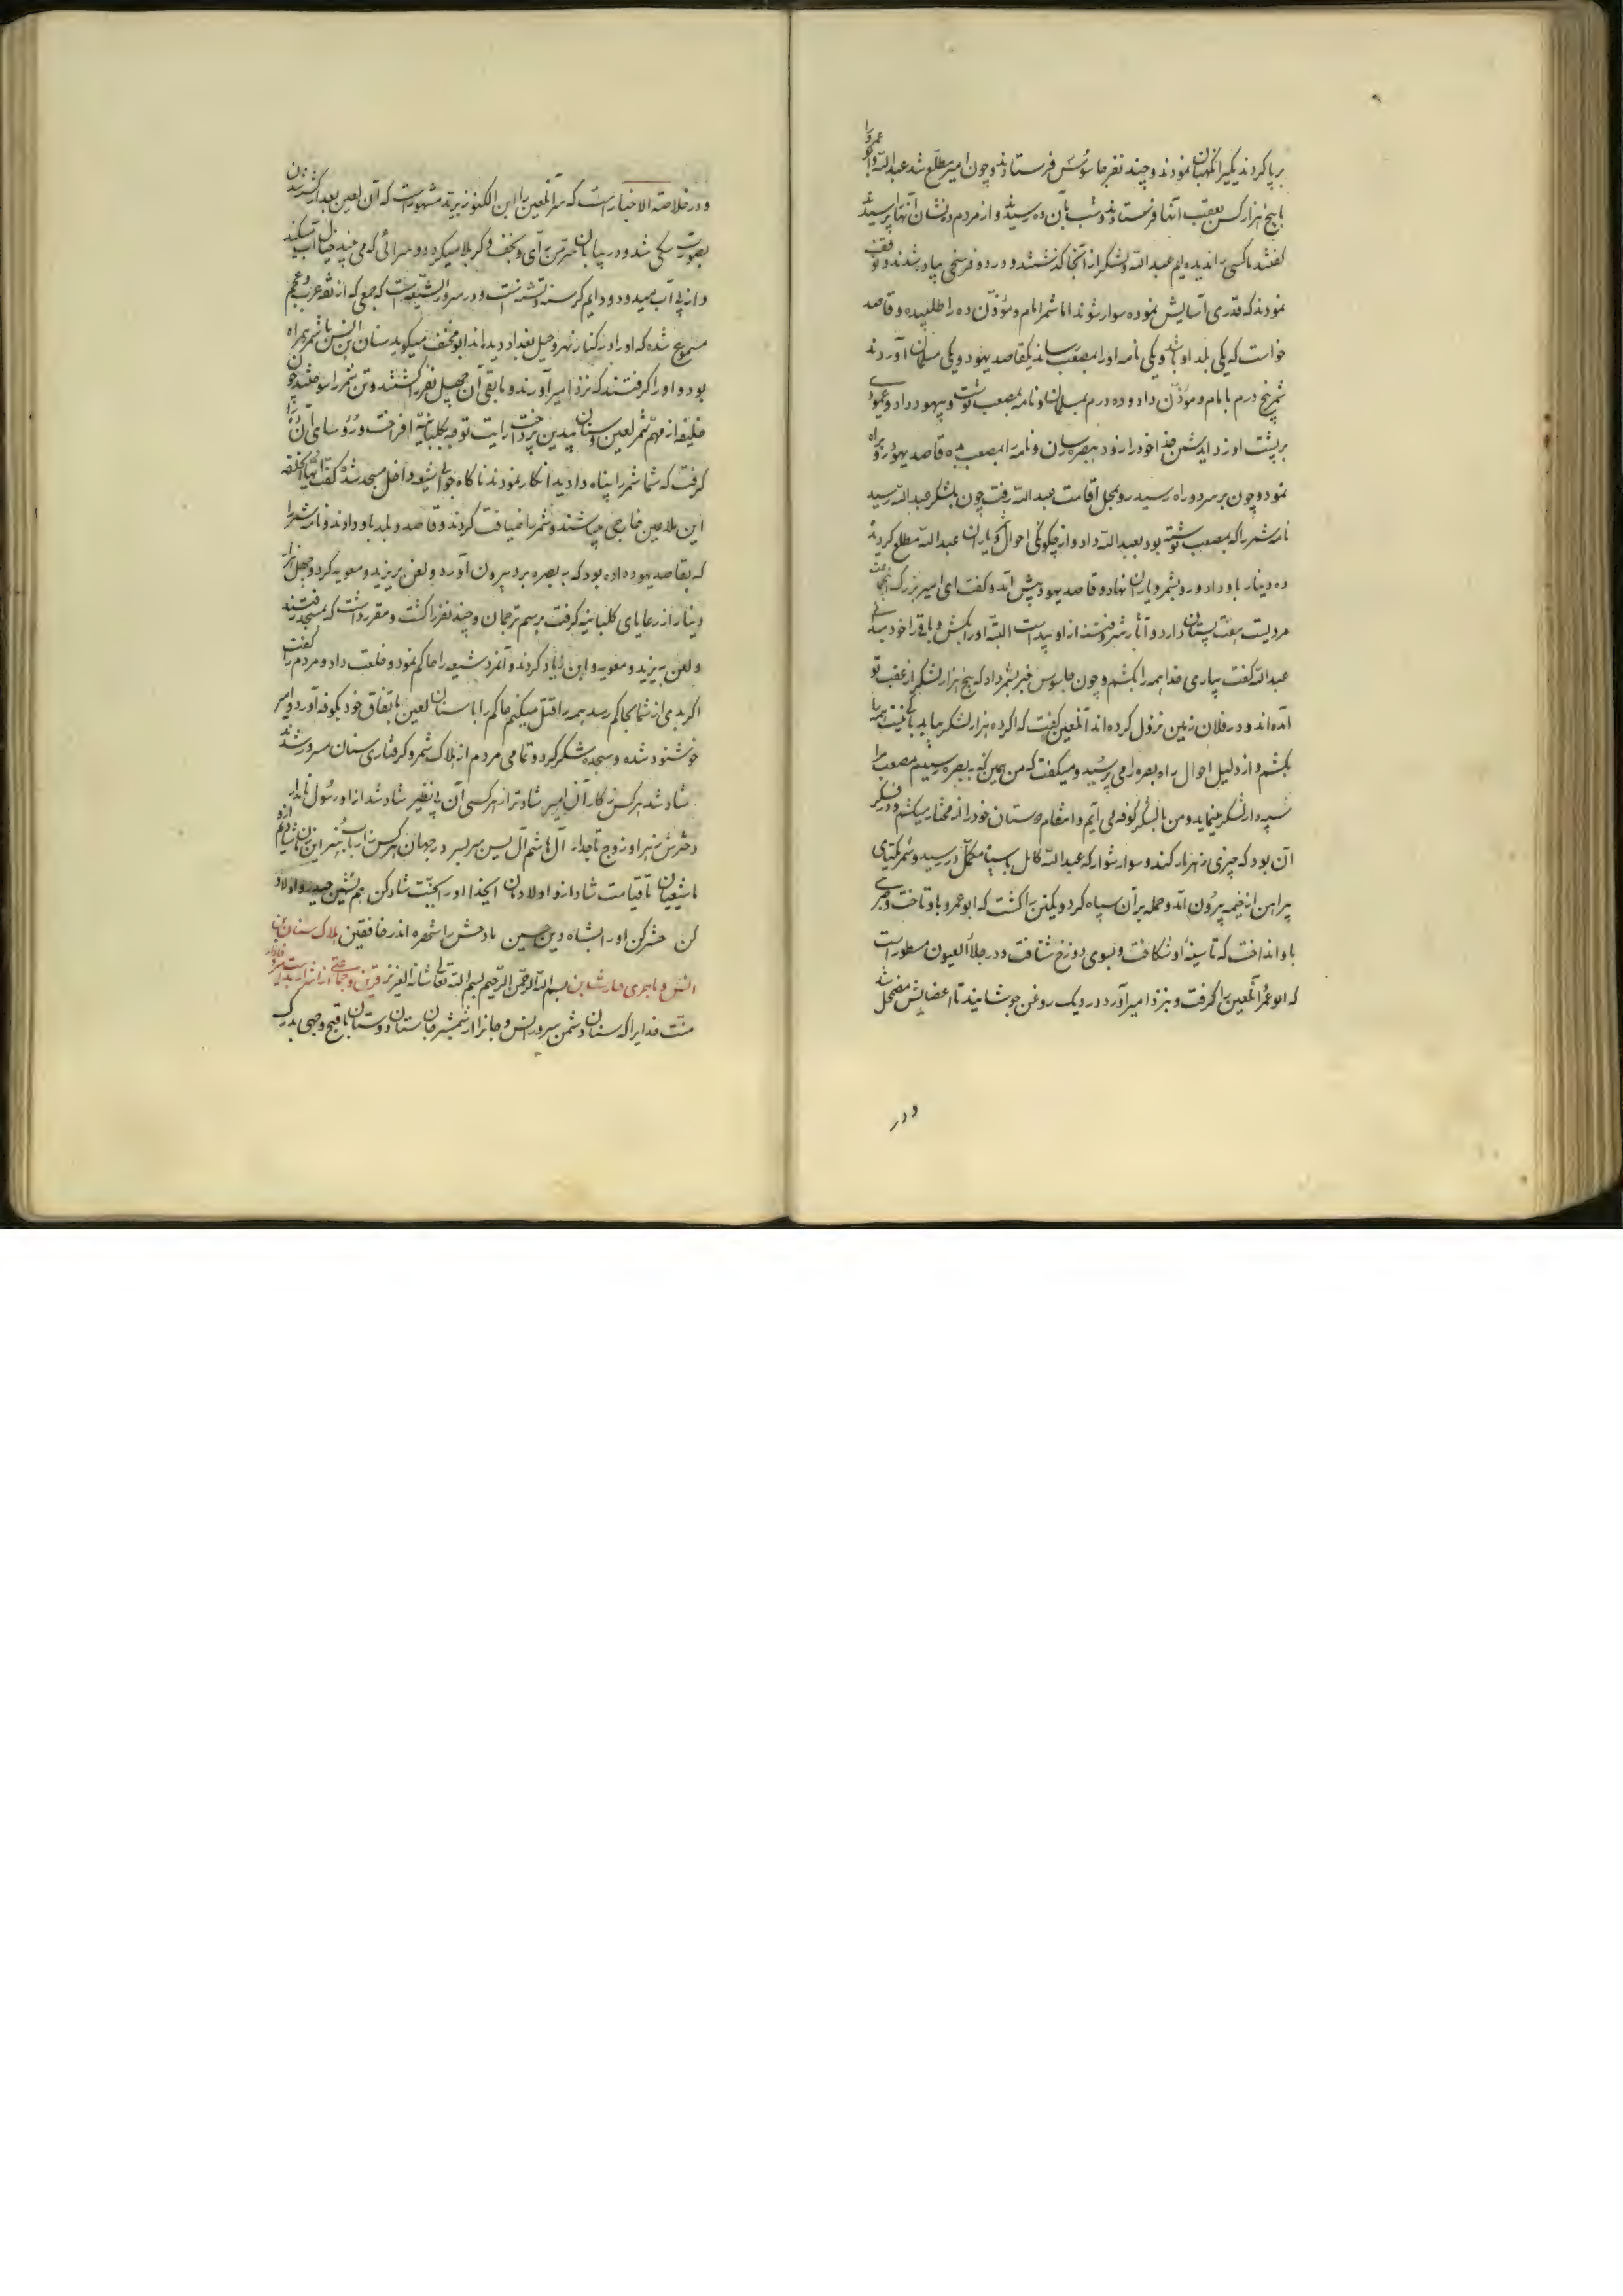 برپا کردند یکیرا نگهبان نمودند و چند نفر جاسوس فرستادند و چون امیر مطلع شد عبدالله و ابو عمرو را
با پنج هزار کس بعقب آنها فرستادند و شب بآن ده رسیدند و از مردم ده نشان آنها پرسیدند
گفتند ما کسی را ندیده ایم عبدالله و لشکر از آنجا گذشتند و در دو فرسخی پیاده شدند و توقف
نمودند که قدری آسایش نموده سوار شوند اما شمر امام و مؤذن ده را طلبیده و قاصد
خواست که یکی بلد او باشد و یکی نامه او را بمصعب رساند یکقاصد یهود و یکی مسلمان آوردند
شمر پنج درم بامام و مؤذن داد و ده درم بمسلمان و نامه بمصعب نوشت و بیهود داد و عمودی
بر پشت او زد ای دشمن خدا خود را زود ببصره رسان و نامه را بمصعب ده قاصد یهود رو براه
نمود و چون بر سر دو راه رسید رو بمحل اقامت عبدالله رفت چون بلشکر عبدالله رسید
نامه شمر را که بمصعب نوشته بود بعبدالله داد و از چگونگی احوال و یاران عبدالله مطلع گردید
ده دینار باو داد و رو بشمر و یاران نهاد و قاصد یهود پیش آمد و گفت ای امیر بزرگ
مردیست بهیئت پستان دارد و آثار شر و فتنه از او پیداست البته او را بکش و باقی را خود میدانی
عبدالله گفت بیاری خدا همه را بکشم و چون جاسوس خبر بشمر داد که پنج هزار لشکر از عقب تو
آمده اند و در فلان زمین نزول کرده اند آنلعین گفت که اگر ده هزار لشکر بیاید باکی نیست همه را
بکشم و از دلیل احوال راه بصره را می پرسید و میگفت که من همین که به بصره رسیدم مصعب را
سپهدار لشکر مینماید و من با لشکر بکوفه می آیم و انتقام دوستان خود را از مختار میکشم و در فکر
آن بود که چیزی زهر مار کند و سوار شود که عبدالله کامل با سپاه مکمل در رسید و شمر یکتای
پیراهن از خیمه بیرون آمد و حمله بر آن سپاه کرد و یکتن را کشت که ابو عمرو باو تاخت و ضربتی
باو انداخت که تا سینه او شکافت و بسوی دوزخ شتافت و در جلاء العیون مسطور است
که ابو عمر آنلعین را گرفت و بنزد امیر آورد در دیک روغن جوشانیدند تا اعضایش مضمحل شد
و در
و در خلاصة الاخبار است که سر آنلعین را ابن الکنود برید مشهور است که آن لعین بعد از کشته شدن
بصورت سگی شد و در بیابان بی آبی و نجف و کربلا میگردد و سرائی که می بیند خیال آب میکند
و از پی آب میدود و دایم گرسنه و تشنه است و در سرور الشیعه است که جمعی که از ثقه عرب و عجم
مسموع شده که او را در کنار نهر دجیل بغداد دیده اند ابو مخنف میگوید سنان ابن انس با شمر همراه
بود و او را گرفتند که نزد امیر آورند و مابقی آن چهل نفر را کشتند و تن شمر را سوختند چون
خلیفه از مهم شمر لعین و سنان بیدین پرداخت رایت توجه بکلبانیه افراخت و رؤسای آن ده را
گرفت که شما شمر را پناه دادید انکار نمودند ناگاه جوانی شیعه داخل مسجد شده گفت ایها الخلیفه
این ملاعین خارجی میباشند و شمر را ضیافت کردند و قاصد و بلد باو دادند و نامه شمر را
که بقاصد یهود داده بود که به بصره برد بیرون آورد و لعن بر یزید و معویه کرد و چهل هزار
دینار از رعایای کلبانیه گرفت برسم ترجمان و چند نفر را کشت و مقرر داشت که بمسجد رفتند
و لعن به یزید و معویه و ابن زیاد کردند و آنمرد شیعه را حاکم نمود و خلعت داد و مردم را گفت
اگر بدی از شما بحاکم رسد همه را قتل میکنم حاکم را با سنان لعین باتفاق خود بکوفه آورد و امیر
خوشنود شده و سجده شکر کرد و تمامی مردم از هلاک شمر و گرفتاری سنان مسرور شدند
شاد شد هر کس ز کار آن امیر شادتر از هر کسی آن بی نظیر شاد شد از او رسول نامدار
دخترش زهرا و زوج تاجدار آل هاشم آل یس سر بسر در جهان هر کس
ما شیعیان تا قیامت شاد از او اولاد مان ایخدا او را بجنت شاد کن همنشین حیدر و اولاد
کن حشر کن او را بشاه دین حسین مادحش را شهره اندر خافقین هلاک سنان بن
انس بسم الله الرحمن الرحیم بسم الله تعالی شانه العزیز
منت خدایرا که سنان دشمن سرور انس و جانرا از شمشیر جان ستان دوستان باقبح وجهی بدرک